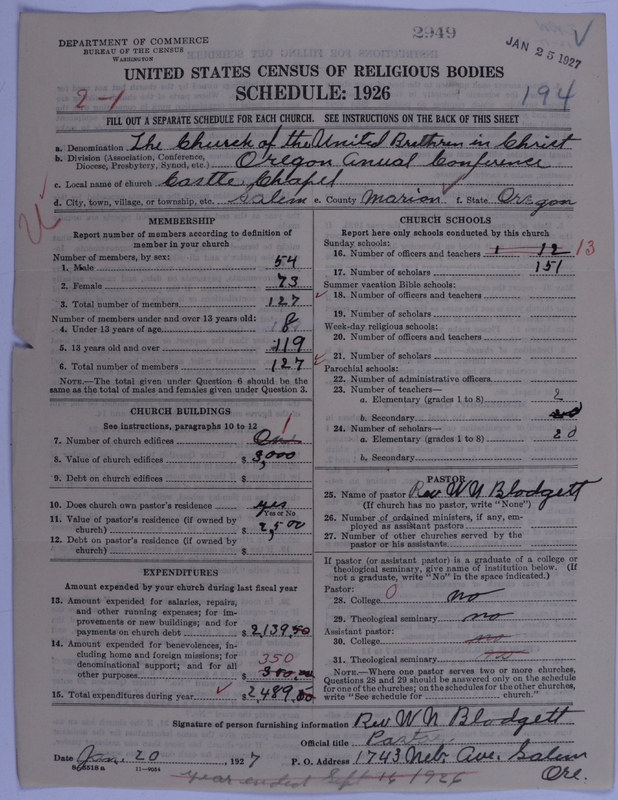 2949
DEPARTMENT OF COMMERCE
BUREAU OF THE CENSUS
WASHINGTON
JAN 25 1927
UNITED STATES CENSUS OF RELIGIOUS BODIES
SCHEDULE: 1926
2-1
194
FILL OUT A SEPARATE SCHEDULE FOR EACH CHURCH. SEE INSTRUCTIONS ON THE BACK OF THIS SHEET
a. Denomination The Church of the United Brethren in Christ
b. Division (Association, Conference, Diocese, Presbytery, Synod, etc.) Oregon Anual Conference
c. Local name of church Castle Chapel
d. City, town, village, or township, etc. Salem e. County Marion f. State Oregon
MEMBERSHIP
Report number of members according to definition of
member in your church
Number of members, by sex:
1. Male 54
2. Female 73
3. Total number of members 127
Number of members under and over 13 years old:
4. Under 13 years of age 8
5. 13 years old and over 119
6. Total number of members 127
NOTE.—The total given under Question 6 should be the
same as the total of males and females given under Question 3.
CHURCH BUILDINGS
See instructions, paragraphs 10 to 12
7. Number of church edifices One 1
8. Value of church edifices $ 8,000
9. Debt on church edifices $
10. Does church own pastor's residence yes
Yes or No
11. Value of pastor's residence (if owned by
church) $ 2,500
12. Debt on pastor's residence (if owned by
church) $
EXPENDITURES
Amount expended by your church during last fiscal year
13. Amount expended for salaries, repairs,
and other running expenses; for im-
provements or new buildings; and for
payments on church debt $ 2,139.50
14. Amount expended for benevolences, in-
cluding home and foreign missions; for
denominational support; and for all
other purposes $ 350
15. Total expenditures during year $ 2,489.
CHURCH SCHOOLS
Report here only schools conducted by this church
Sunday schools:
16. Number of officers and teachers 1 12 13
17. Number of scholars 151
Summer vacation Bible schools:
18. Number of officers and teachers
19. Number of scholars
Week-day religious schools:
20. Number of officers and teachers
21. Number of scholars
Parochial schools:
22. Number of administrative officers
23. Number of teachers—
a. Elementary (grades 1 to 8) 2
b. Secondary 20
24. Number of scholars—
a. Elementary (grades 1 to 8) 20
b. Secondary
PASTOR
25. Name of pastor Rev W N Blodgett
(If church has no pastor, write "None")
26. Number of ordained ministers, if any, em-
ployed as assistant pastors
27. Number of other churches served by the
pastor or his assistants
If pastor (or assistant pastor) is a graduate of a college or
theological seminary, give name of institution below. (If
not a graduate, write "No" in the space indicated.)
Pastor:
28. College 0 no
29. Theological seminary no
Assistant pastor:
30. College no
31. Theological seminary no
NOTE.—Where one pastor serves two or more churches,
Questions 28 and 29 should be answered only on the schedule
for one of the churches; on the schedules for the other churches,
write "See schedule for church."
Signature of person furnishing information Rev W N Blodgett
Official title Pastor
Date Jan. 20, 1927 P. O. Address 1743 Nebr Ave. Salem
Ore.
8-5518 a 11—9054
year ended Sept 16 1926